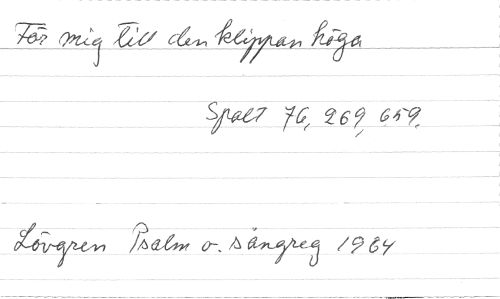 För mig till den klippan höga
Spalt 76, 269, 659.
Lövgren Psalm o. sångreg 1964